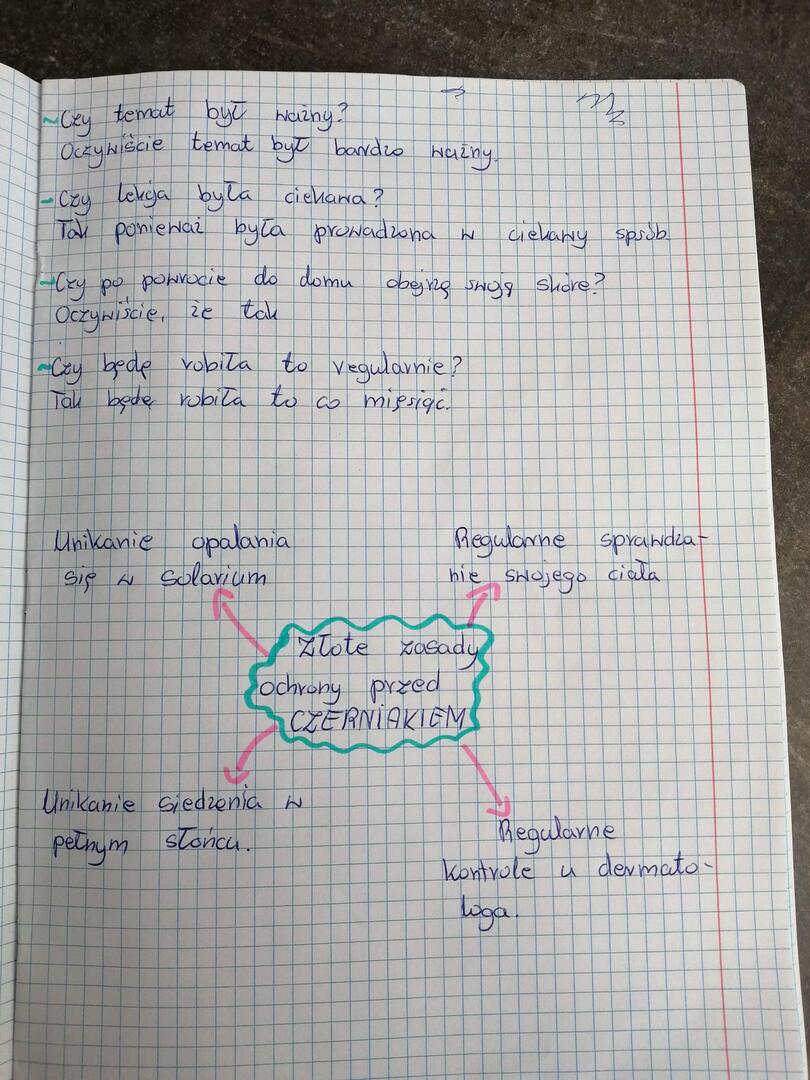 ~Czy temat był ważny?
Oczywiście temat był bardzo ważny.
-Czy lekcja była ciekawa?
Tak ponieważ była prowadzona w ciekawy spsób.
~Czy po powrocie do domu obejrzę swoją skórę?
Oczywiście, że tak
~Czy będę robiła to regularnie?
Tak będę robiła to co miesiąc.
Unikanie opalania
się w solarium
Regularne sprawdza-
nie swojego ciała
Złote zasady
ochrony przed
CZERNIAKIEM
Unikanie siedzenia w
pełnym słońcu.
Regularne
kontrole u dermato-
loga.